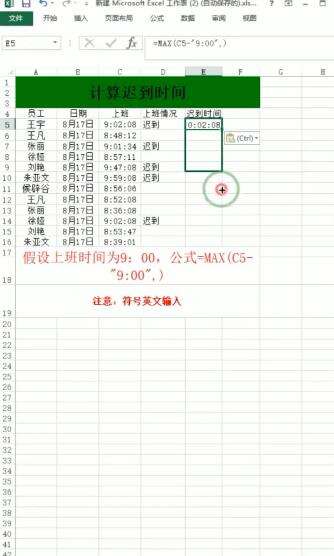 新建 Microsoft Excel 工作表 (2) (自动保存的).xls...
文件 开始 插入 页面布局 公式 数据 审阅 视图
E5 =MAX(C5-"9:00",)
A B C D E F G H
1
2 计算迟到时间
3
4 员工 日期 上班 上班情况 迟到时间
5 王宇 8月17日 9:02:08 迟到 0:02:08
6 王凡 8月17日 8:48:12 (Ctrl)
7 张丽 8月17日 9:01:34 迟到
8 徐娅 8月17日 8:57:11
9 刘艳 8月17日 9:47:08 迟到
10 朱亚文 8月17日 9:59:08 迟到
11 候辟谷 8月17日 8:56:06
12 王凡 8月17日 8:52:08
13 张丽 8月17日 8:36:08
14 徐娅 8月17日 9:02:08 迟到
15 刘艳 8月17日 8:53:47
16 朱亚文 8月17日 8:39:01
17 假设上班时间为9：00，公式=MAX(C5-
18 "9:00",)
19 注意，符号英文输入
20
21
22
23
24
25
26
27
28
29
30
31
32
33
34
35
36
37
38
39
40
41
42